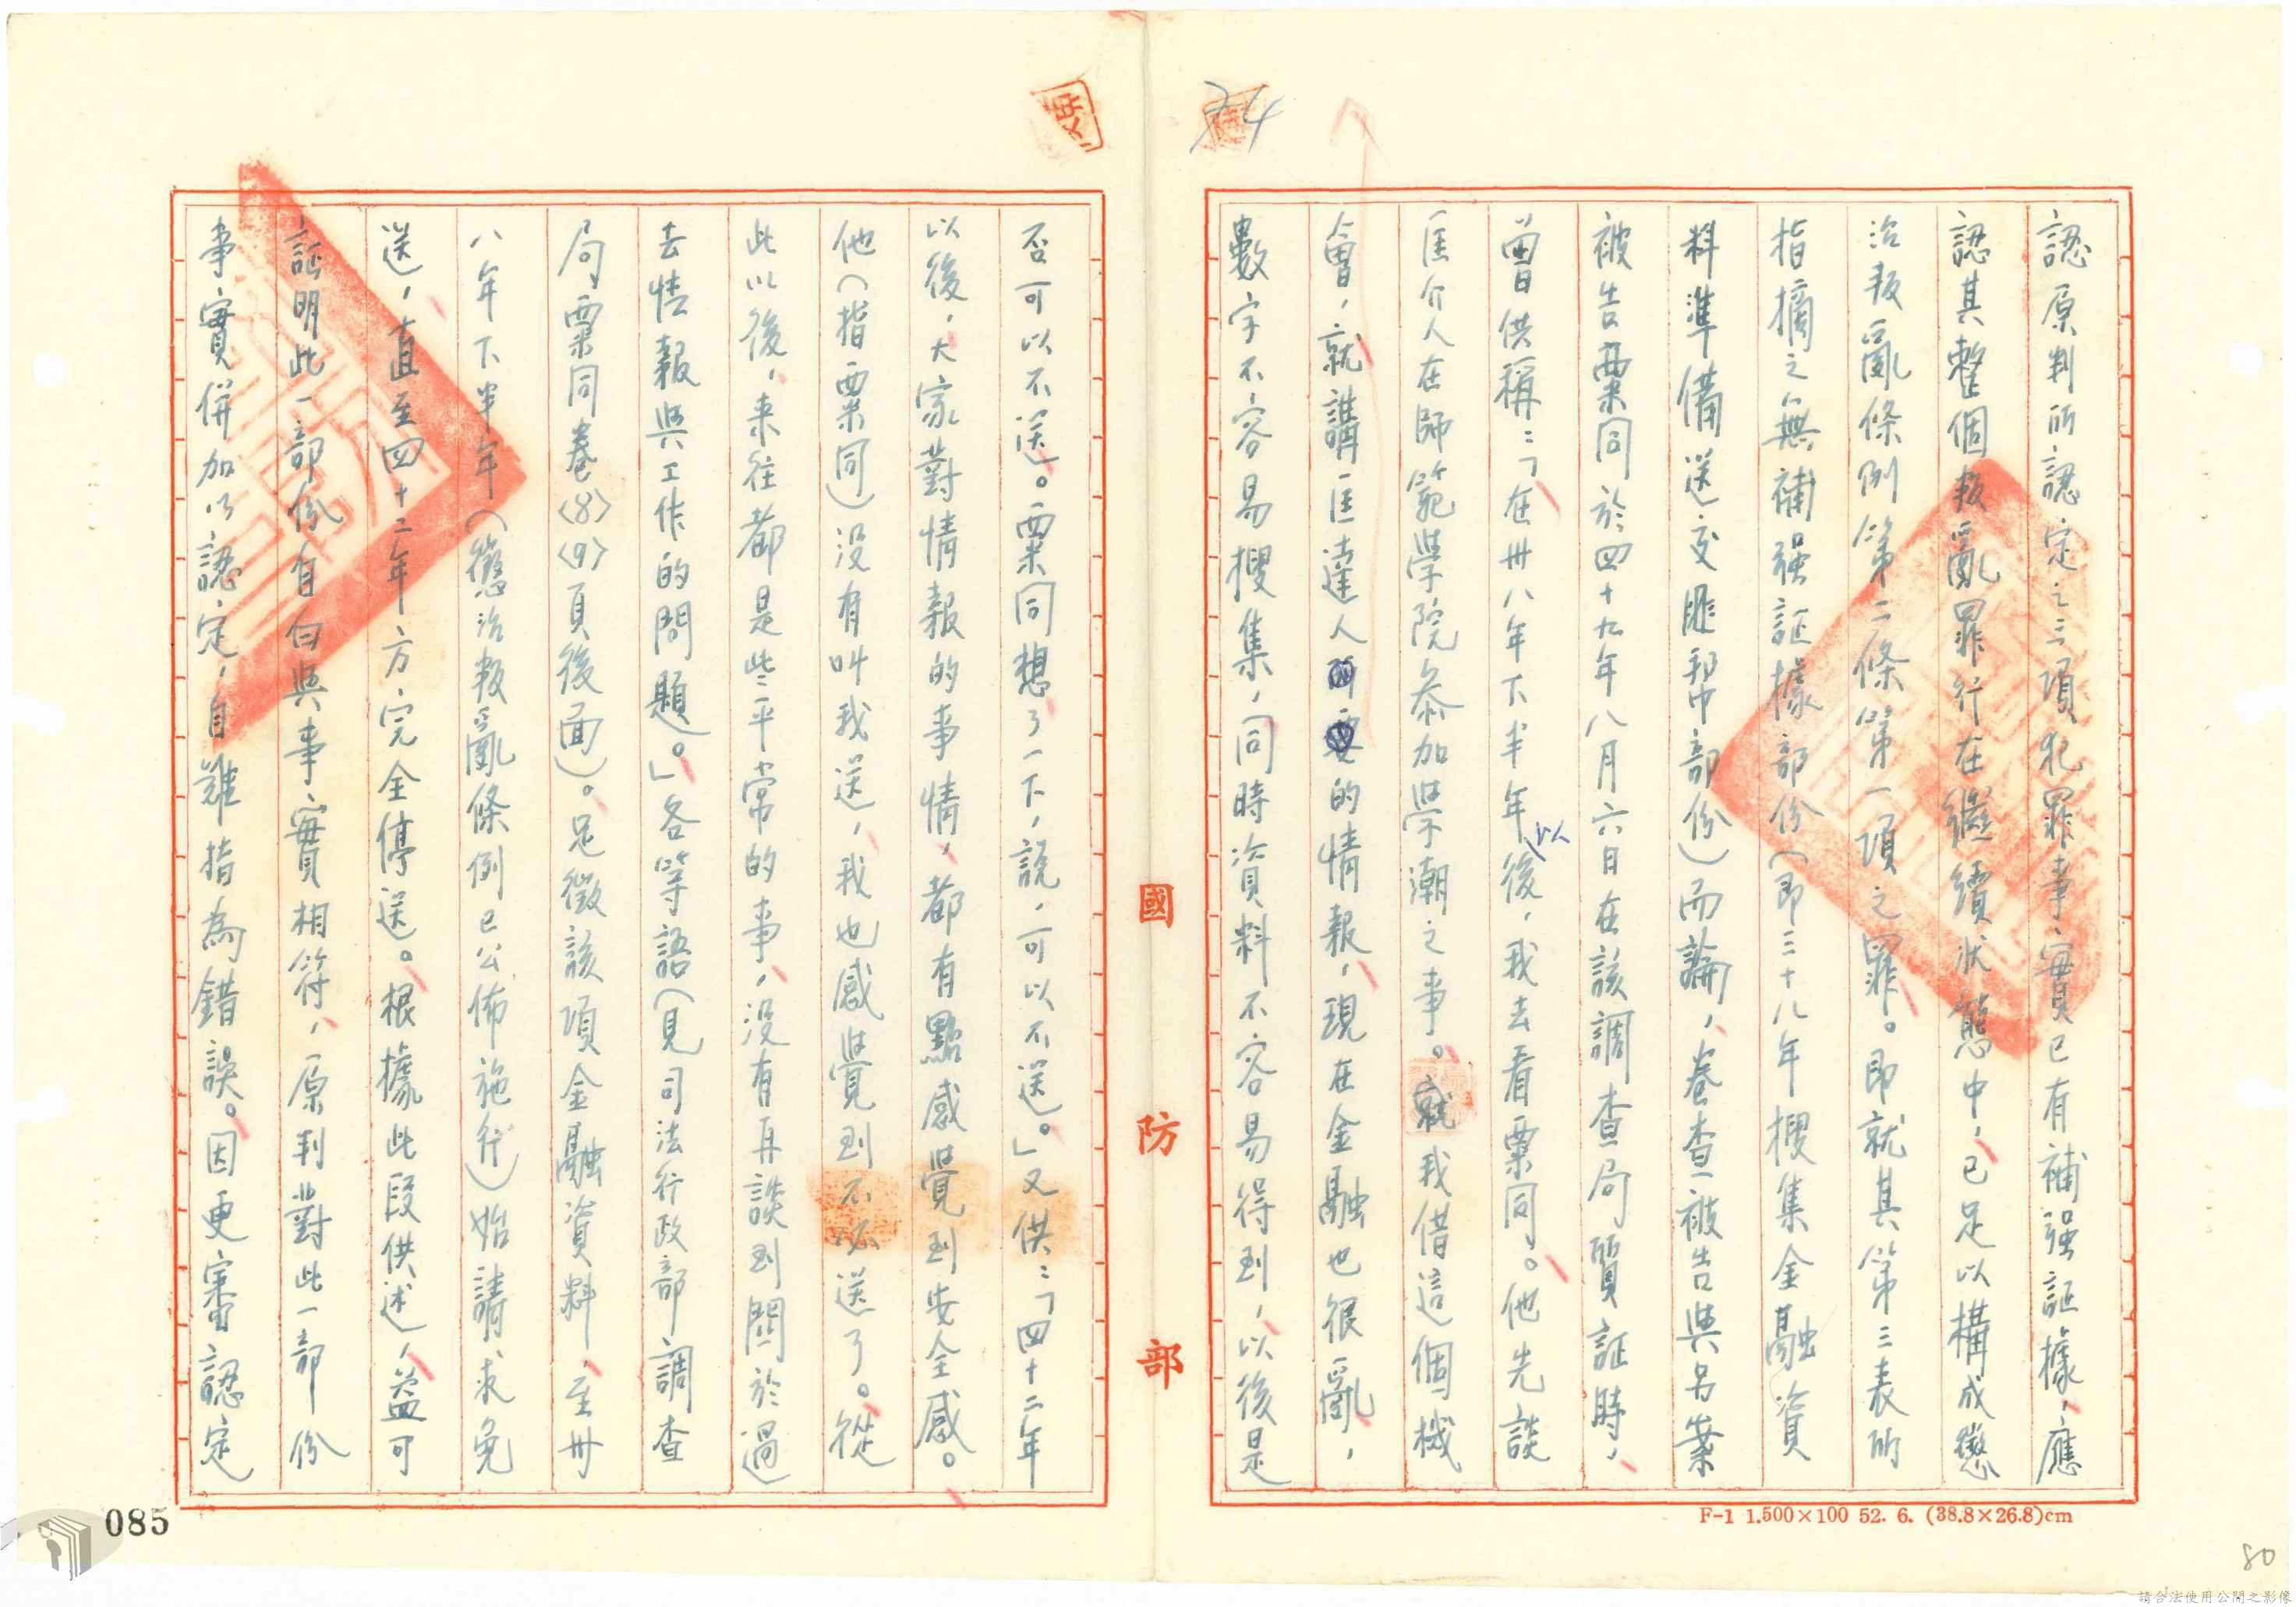 認原判所認定之三項犯罪事實已有補强証據，應
認其整個叛亂罪行在繼續狀態中，已足以構成懲
治叛亂條例第二條第一項之罪。即就其第三表所
指摘之無補强証據部份（即三十八年搜集金融資
料準備送交匪帮部份）而論，卷查被告與另案
被告粟同於四十九年八月六日在該調查局質証時，
曾供稱：「在卅八年下半年以後，我去看粟同。他先談
匡介人在師範學院參加學潮之事。就我借這個機
會，就講匡達人的情報，現在金融也很亂，
數字不容易搜集，同時資料不容易得到，以後是
國防部
否可以不送。粟同想了一下，說，可以不送。」又供：「四十二年
以後，大家對情報的事情，都有點感覺到安全感。
他（指粟同）沒有叫我送，我也感覺到不必送了。從
此以後，来往都是些平常的事，沒有再談到關於過
去情報與工作的問題。」各等語（見司法行政部調查
局粟同卷〈8〉〈9〉頁後面）。足徵該項金融資料，至卅
八年下半年（懲治叛亂條例已公佈施行）始請求免
送，直至四十二年方完全停送。根據此段供述，益可
証明此一部份自白與事實相符，原判對此一部份
事實併加以認定，自難指為錯誤。因更審認定
F-1 1.500×100 52. 6. (38.8×26.8)cm
085
80
請合法使用公開之影像